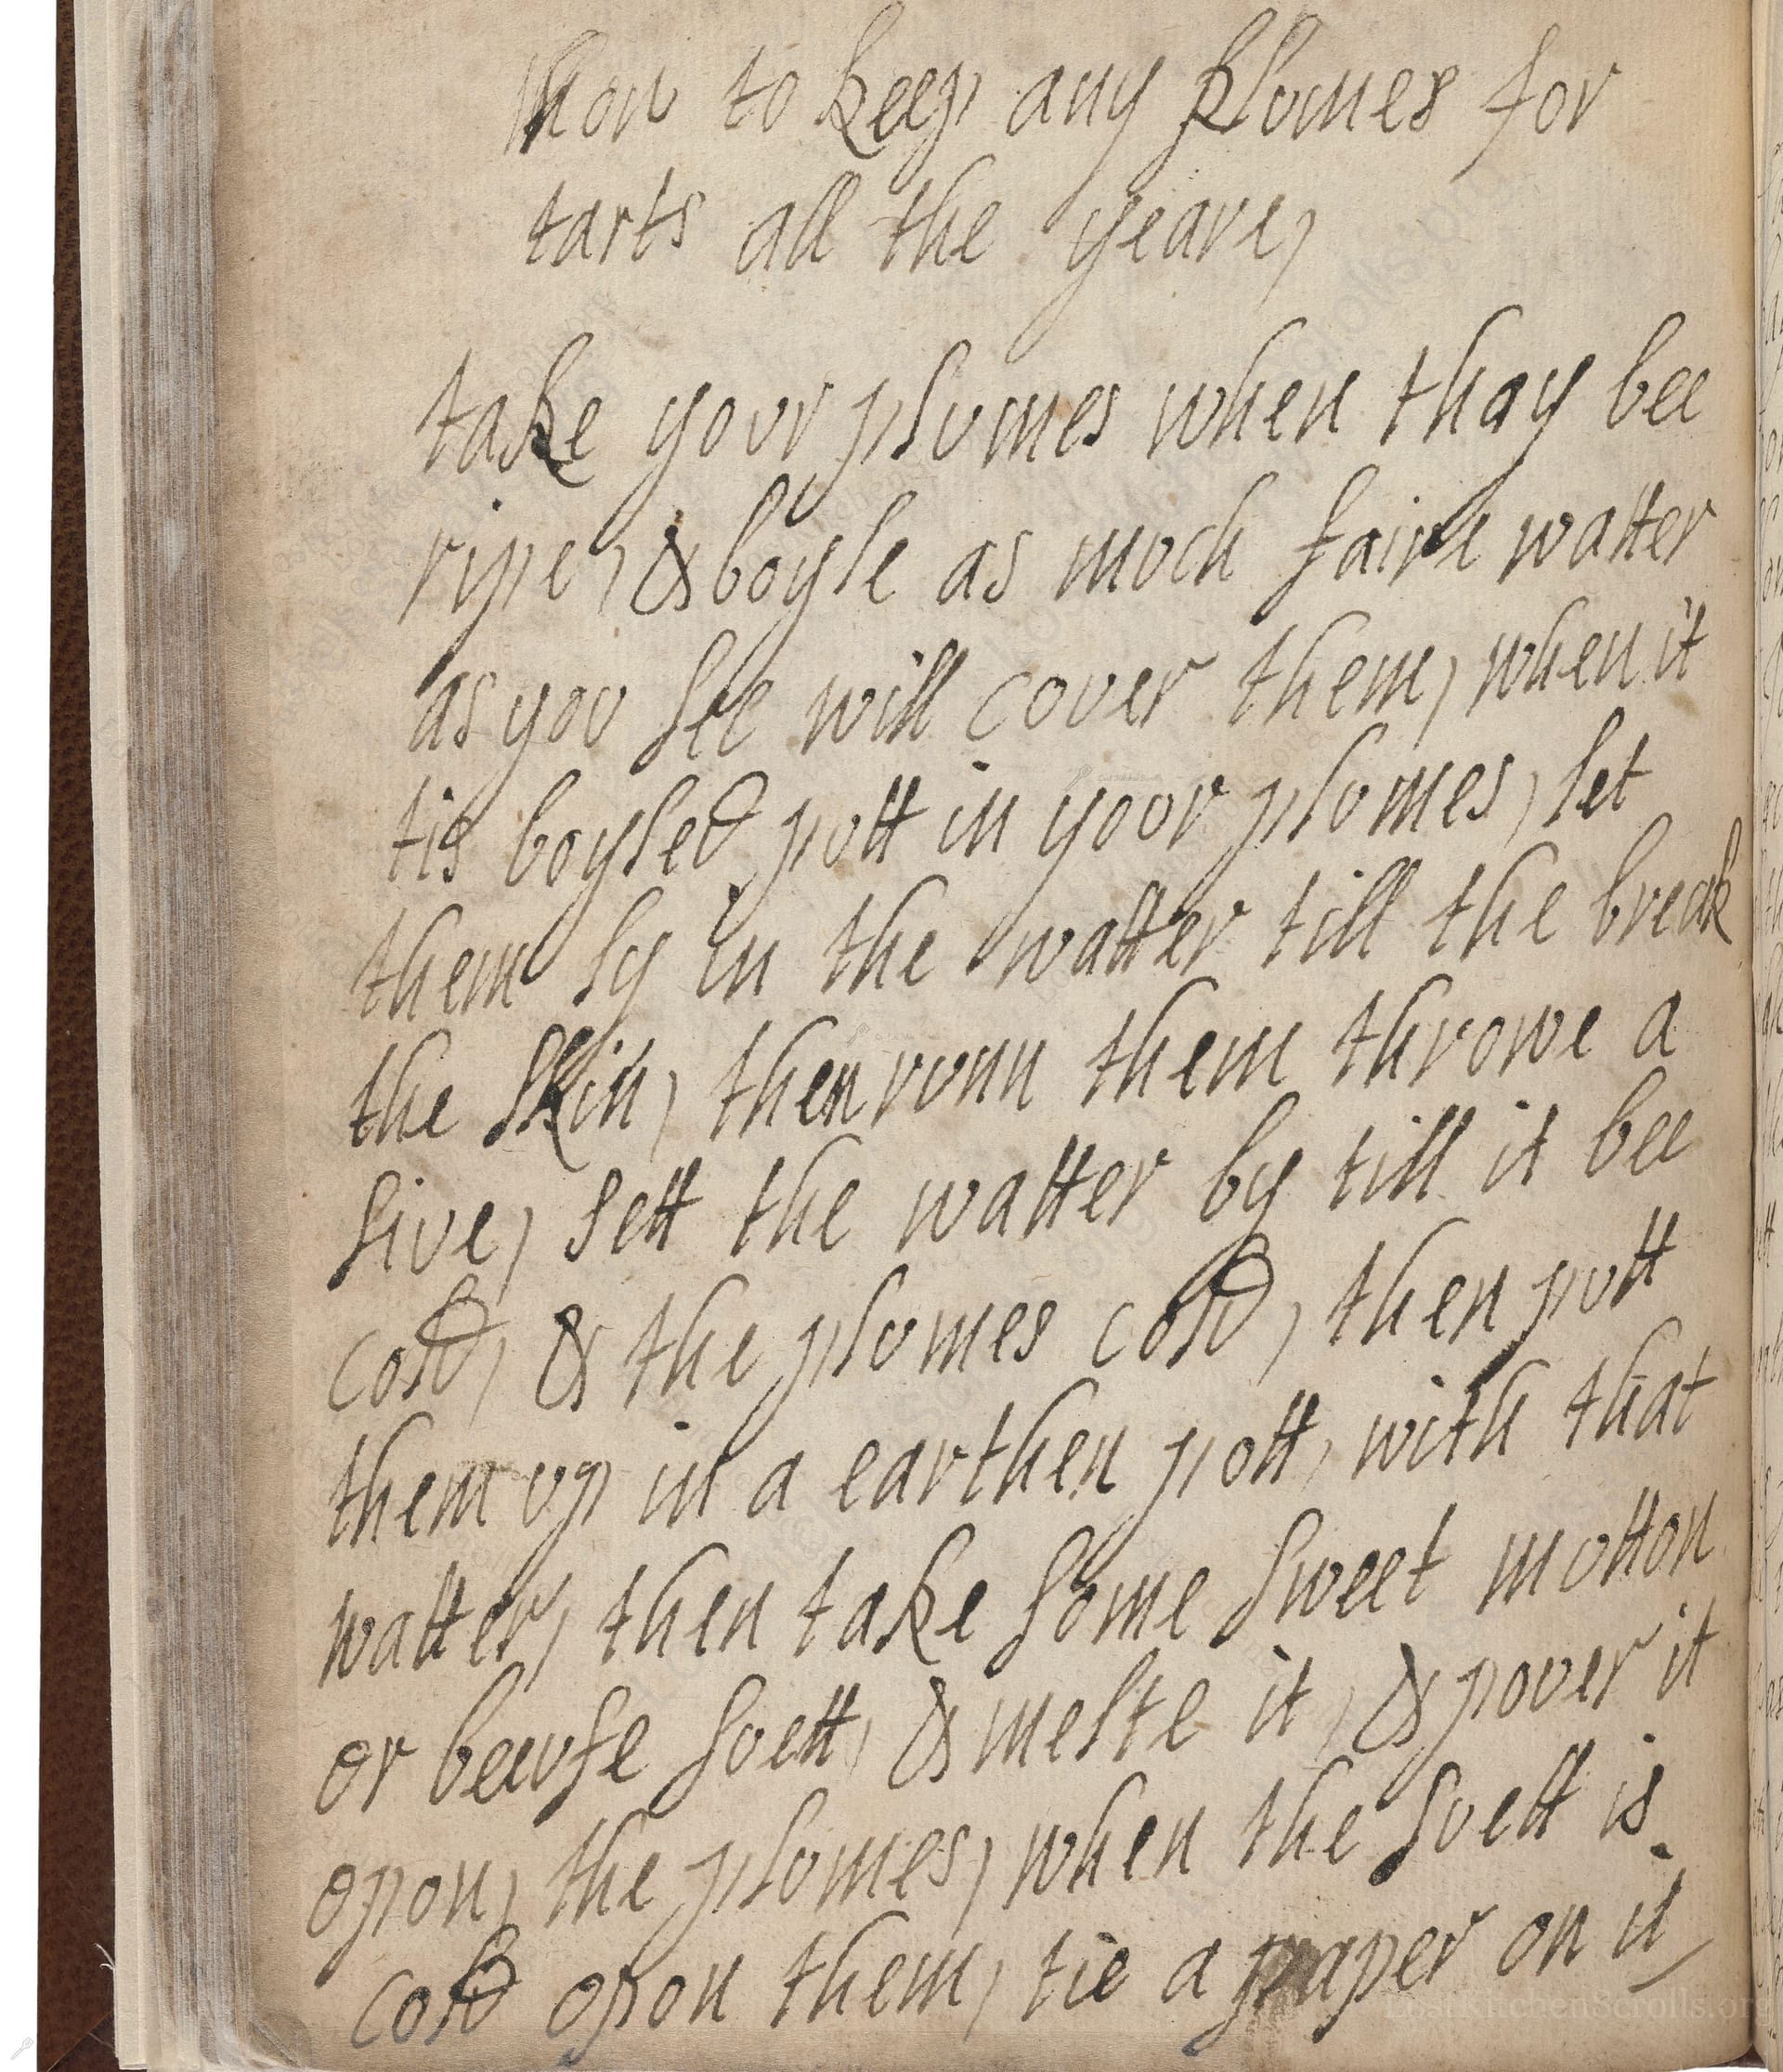 how to keep any plomes for
tarts all the yeare,
take yovr plomes when thay bee
ripe, & boyle as moch faire watter
as yov see will cover them, when it
tis boyled pott in yovr plomes, let
them ly in the watter till the break
the skin, then ronn them throwe a
sive, sett the watter by till it bee
cold, & the plomes cold, then pott
them vp in a earthen pott, with that
watter, then take some sweet motton
or beevfe svett, & melte it, & pover it
opon, the plomes, when the svett is
cold opon them, tie a paper on it,
LostKitchenScrolls.org